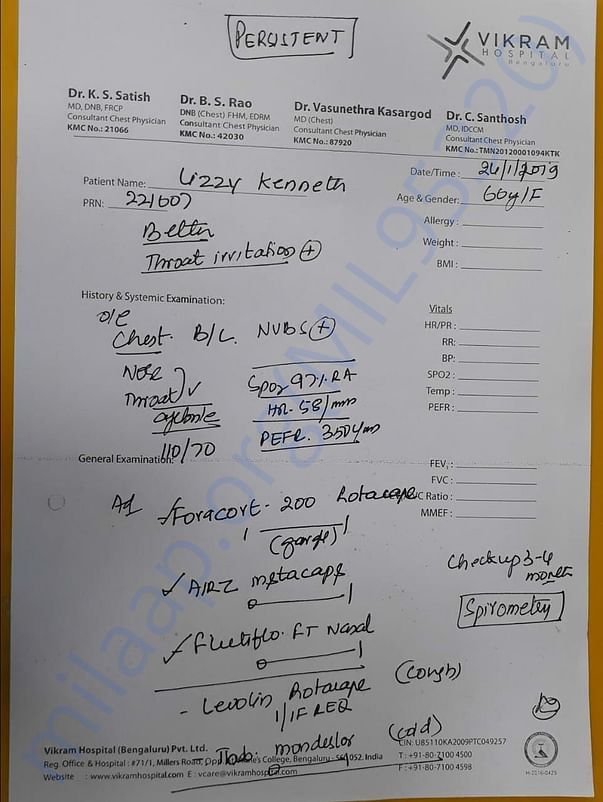 PERSISTENT
VIKRAM
HOSPITAL
Bengaluru
Dr. K. S. Satish
MD, DNB, FRCP
Consultant Chest Physician
KMC No.: 21066
Dr. B. S. Rao
DNB (Chest) FHM, EDRM
Consultant Chest Physician
KMC No.: 42030
Dr. Vasunethra Kasargod
MD (Chest)
Consultant Chest Physician
KMC No.: 87920
Dr. C. Santhosh
MD, IDCCM
Consultant Chest Physician
KMC No.: TMN20120001094KTK
Patient Name: Lizzy Kenneth
PRN: 221607
Date/Time: 24/1/2019
Age & Gender: 60y/F
Allergy :
Weight :
BMI :
Better
Throat irritation +
History & Systemic Examination:
O/E
Chest. B/L. NVBS +
Nose
Throat
110/70
SpO2 97% RA
HR- 58/min
PEFR. 350 L/min
Vitals
HR/PR :
RR:
BP:
SPO2 :
Temp :
PEFR :
General Examination:
FEV1 :
FVC :
C Ratio :
MMEF :
Foracort- 200 Rotacaps
1 1
(gargle)
AIRZ rotacaps
0 1
Flutiflo. FT Nasal
0 1
Checkup 3-4
month
Spirometry
- Levolin Rotacaps (cough)
1/1F REQ
Tab: mondeslor (cold)
Vikram Hospital (Bengaluru) Pvt. Ltd.
Reg. Office & Hospital : #71/1, Millers Road, Opp. College, Bengaluru - 561052. India
Website : www.vikramhospital.com E : vcare@vikramhospital.com
CIN: U85110KA2009PTC049257
T : +91-80-7100 4500
F : +91-80-7100 4598
H-2016-0425